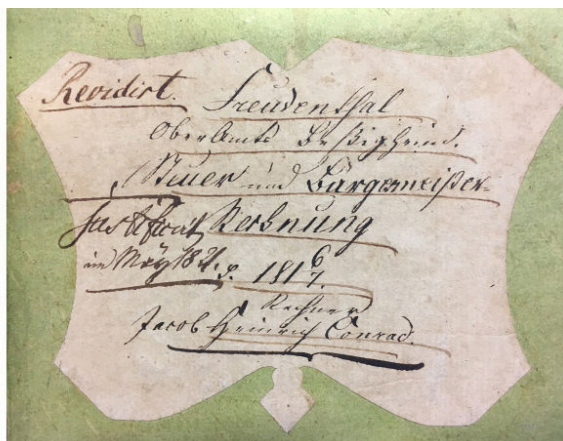 Revidirt. Freudenthal
OberAmts Beßigheim.
Steuer und Burgermeister
Justificirt Rechnung
im May 1821. p. 1816/7.
Rechner
Jacob Heinrich Conrad.